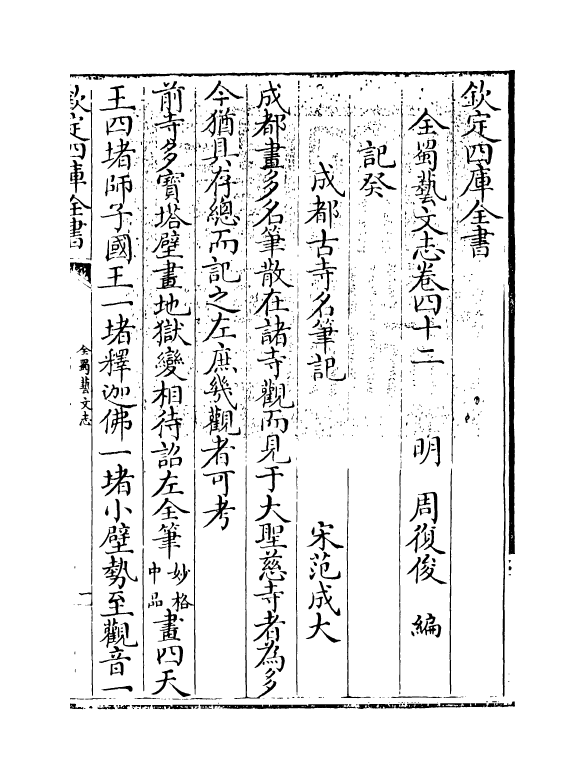 欽定四庫全書
全蜀藝文志卷四十二　明　周復俊　編
記癸
成都古寺名筆記　宋范成大
成都畫多名筆散在諸寺觀而見于大聖慈寺者為多
今猶具存總而記之左庶幾觀者可考
前寺多寶塔壁畫地獄變相待詔左全筆妙格中品畫四天
王四堵師子國王一堵釋迦佛一堵小壁勢至觀音一
欽定四庫全書
全蜀藝文志
一